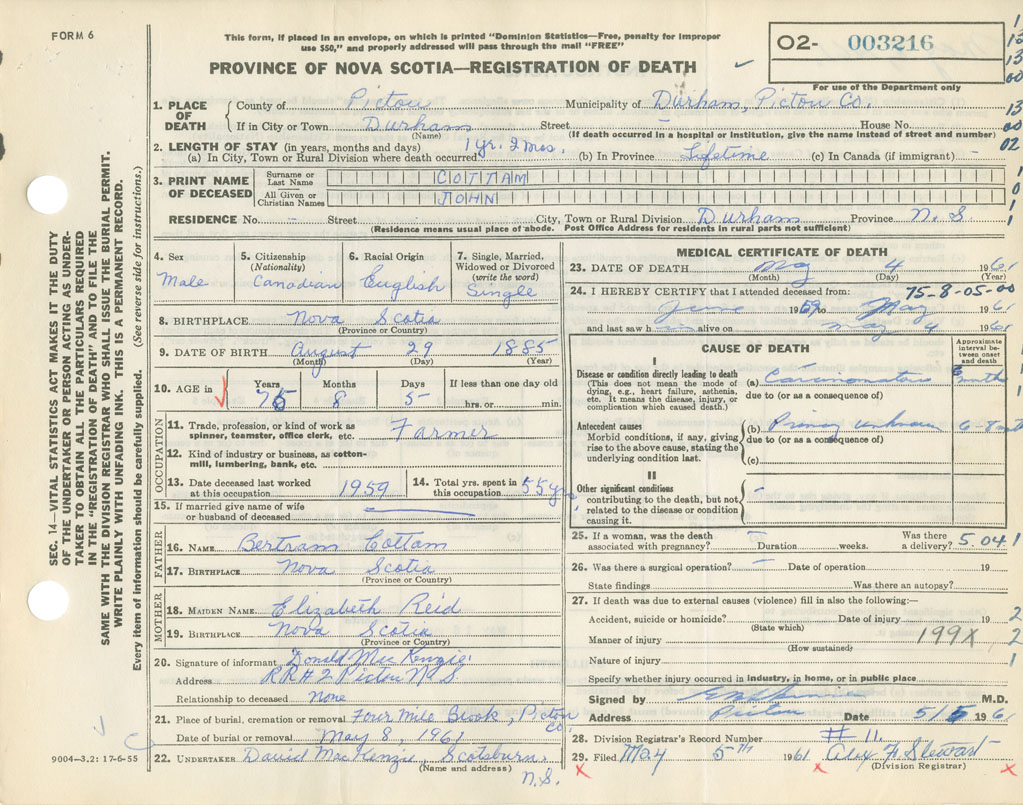 FORM 6
This form, if placed in an envelope, on which is printed "Dominion Statistics—Free, penalty for improper
use $50," and properly addressed will pass through the mail "FREE"
PROVINCE OF NOVA SCOTIA—REGISTRATION OF DEATH
02- 003216
For use of the Department only
1. PLACE OF DEATH
County of Pictou Municipality of Durham, Pictou Co.
If in City or Town Durham Street – House No.
(Name) (If death occurred in a hospital or institution, give the name instead of street and number)
2. LENGTH OF STAY (in years, months and days)
(a) In City, Town or Rural Division where death occurred 1 yr. 2 mos. (b) In Province Lifetime (c) In Canada (if immigrant) –
3. PRINT NAME OF DECEASED
Surname or Last Name COTTAM
All Given or Christian Names JOHN
RESIDENCE No. – Street City, Town or Rural Division Durham Province N.S.
(Residence means usual place of abode. Post Office Address for residents in rural parts not sufficient)
4. Sex Male
5. Citizenship (Nationality) Canadian
6. Racial Origin English
7. Single, Married, Widowed or Divorced (write the word) Single
8. BIRTHPLACE Nova Scotia
(Province or Country)
9. DATE OF BIRTH August 29 1885
(Month) (Day) (Year)
10. AGE in Years Months Days If less than one day old
75 8 5 hrs. or min.
OCCUPATION
11. Trade, profession, or kind of work as spinner, teamster, office clerk, etc. Farmer
12. Kind of industry or business, as cotton-mill, lumbering, bank, etc.
13. Date deceased last worked at this occupation 1959
14. Total yrs. spent in this occupation 55 yrs.
15. If married give name of wife or husband of deceased
FATHER
16. NAME Bertram Cottam
17. BIRTHPLACE Nova Scotia
(Province or Country)
MOTHER
18. MAIDEN NAME Elizabeth Reid
19. BIRTHPLACE Nova Scotia
(Province or Country)
20. Signature of informant Donald MacKenzie
Address R R # 2 Pictou N S
Relationship to deceased None
21. Place of burial, cremation or removal Four Mile Brook, Pictou Co.
Date of burial or removal May 8, 1961
22. UNDERTAKER David MacKenzie, Scotsburn, N.S.
(Name and address)
9004—3.2: 17-6-55
SEC. 14—VITAL STATISTICS ACT MAKES IT THE DUTY
OF THE UNDERTAKER OR PERSON ACTING AS UNDER-
TAKER TO OBTAIN ALL THE PARTICULARS REQUIRED
IN THE "REGISTRATION OF DEATH" AND TO FILE THE
SAME WITH THE DIVISION REGISTRAR WHO SHALL ISSUE THE BURIAL PERMIT.
WRITE PLAINLY WITH UNFADING INK. THIS IS A PERMANENT RECORD.
Every item of information should be carefully supplied. (See reverse side for instructions.)
MEDICAL CERTIFICATE OF DEATH
23. DATE OF DEATH May 4 1961
(Month) (Day) (Year)
24. I HEREBY CERTIFY that I attended deceased from: 75-8-05-00
June 19 May 1961
and last saw him alive on May 4 1961
CAUSE OF DEATH
Approximate interval between onset and death
I
Disease or condition directly leading to death
(This does not mean the mode of dying, e.g., heart failure, asthenia, etc. It means the disease, injury, or complication which caused death.)
(a) Carcinomatosis 6 month
due to (or as a consequence of)
Antecedent causes
Morbid conditions, if any, giving rise to the above cause, stating the underlying condition last.
(b) Primary unknown
due to (or as a consequence of)
(c)
II
Other significant conditions
contributing to the death, but not related to the disease or condition causing it.
–
25. If a woman, was the death associated with pregnancy? – Duration weeks. Was there a delivery? 5.041
26. Was there a surgical operation? – Date of operation 19
State findings Was there an autopsy?
27. If death was due to external causes (violence) fill in also the following:—
Accident, suicide or homicide? Date of injury 19 2
(State which)
Manner of injury 199X 2
(How sustained)
Nature of injury 1
Specify whether injury occurred in industry, in home, or in public place
Signed by M.D.
Address Pictou Date 5/5 1961
28. Division Registrar's Record Number # 11.
29. Filed May 5th 1961 Alex F. Stewart
(Division Registrar)